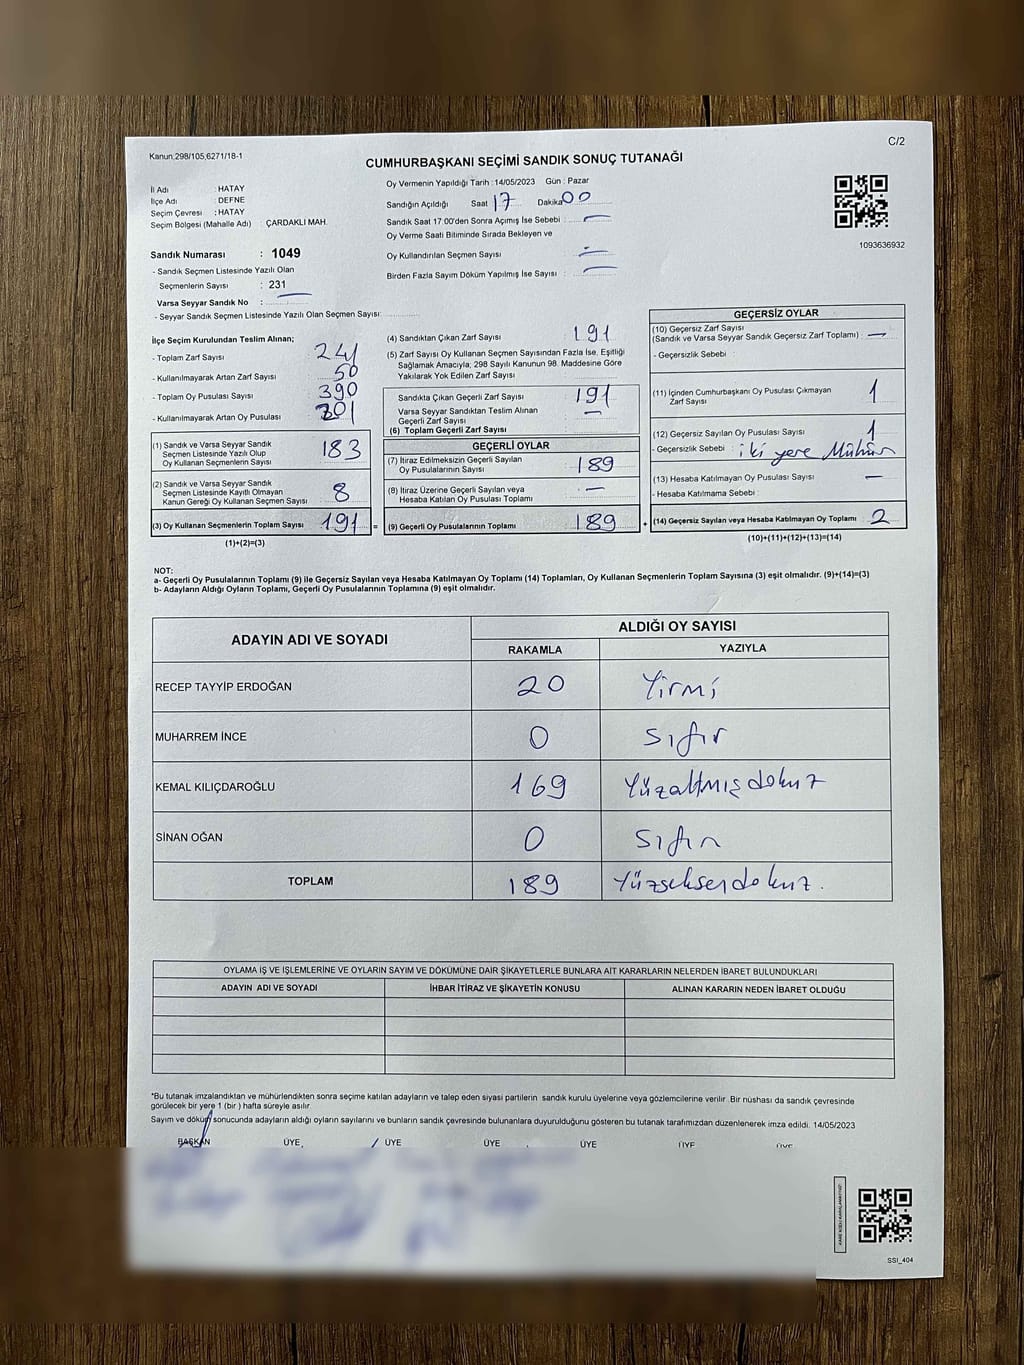 Kanun;298/105;6271/18-1
C/2
CUMHURBAŞKANI SEÇİMİ SANDIK SONUÇ TUTANAĞI
İl Adı : HATAY
İlçe Adı : DEFNE
Seçim Çevresi : HATAY
Seçim Bölgesi (Mahalle Adı) : ÇARDAKLI MAH.
Oy Vermenin Yapıldığı Tarih :14/05/2023 Gün : Pazar
Sandığın Açıldığı Saat 17 Dakika 00
Sandık Saat 17:00'den Sonra Açımış İse Sebebi : —
Oy Verme Saati Bitiminde Sırada Bekleyen ve
Oy Kullandırılan Seçmen Sayısı : —
Birden Fazla Sayım Döküm Yapılmış İse Sayısı : —
1093636932
Sandık Numarası : 1049
- Sandık Seçmen Listesinde Yazılı Olan
Seçmenlerin Sayısı : 231
Varsa Seyyar Sandık No : —
- Seyyar Sandık Seçmen Listesinde Yazılı Olan Seçmen Sayısı:
İlçe Seçim Kurulundan Teslim Alınan;
- Toplam Zarf Sayısı 241
- Kullanılmayarak Artan Zarf Sayısı 50
- Toplam Oy Pusulası Sayısı 390
- Kullanılmayarak Artan Oy Pusulası 201
(1) Sandık ve Varsa Seyyar Sandık
Seçmen Listesinde Yazılı Olup
Oy Kullanan Seçmenlerin Sayısı 183
(2) Sandık ve Varsa Seyyar Sandık
Seçmen Listesinde Kayıtlı Olmayan
Kanun Gereği Oy Kullanan Seçmen Sayısı 8
(3) Oy Kullanan Seçmenlerin Toplam Sayısı 191 =
(1)+(2)=(3)
(4) Sandıktan Çıkan Zarf Sayısı : 191
(5) Zarf Sayısı Oy Kullanan Seçmen Sayısından Fazla İse, Eşitliği
Sağlamak Amacıyla; 298 Sayılı Kanunun 98. Maddesine Göre
Yakılarak Yok Edilen Zarf Sayısı :
Sandıkta Çıkan Geçerli Zarf Sayısı : 191
Varsa Seyyar Sandıktan Teslim Alınan
Geçerli Zarf Sayısı : —
(6) Toplam Geçerli Zarf Sayısı :
GEÇERLİ OYLAR
(7) İtiraz Edilmeksizin Geçerli Sayılan
Oy Pusulalarının Sayısı : 189
(8) İtiraz Üzerine Geçerli Sayılan veya
Hesaba Katılan Oy Pusulası Toplamı : —
(9) Geçerli Oy Pusulalarının Toplamı : 189 +
GEÇERSİZ OYLAR
(10) Geçersiz Zarf Sayısı
(Sandık ve Varsa Seyyar Sandık Geçersiz Zarf Toplamı) : —
- Geçersizlik Sebebi :
(11) İçinden Cumhurbaşkanı Oy Pusulası Çıkmayan
Zarf Sayısı : 1
(12) Geçersiz Sayılan Oy Pusulası Sayısı : 1
- Geçersizlik Sebebi : iki yere Mühür
(13) Hesaba Katılmayan Oy Pusulası Sayısı : —
- Hesaba Katılmama Sebebi :
(14) Geçersiz Sayılan veya Hesaba Katılmayan Oy Toplamı : 2
(10)+(11)+(12)+(13)=(14)
NOT:
a- Geçerli Oy Pusulalarının Toplamı (9) ile Geçersiz Sayılan veya Hesaba Katılmayan Oy Toplamı (14) Toplamları, Oy Kullanan Seçmenlerin Toplam Sayısına (3) eşit olmalıdır. (9)+(14)=(3)
b- Adayların Aldığı Oyların Toplamı, Geçerli Oy Pusulalarının Toplamına (9) eşit olmalıdır.
ADAYIN ADI VE SOYADI ALDIĞI OY SAYISI
RAKAMLA YAZIYLA
RECEP TAYYİP ERDOĞAN 20 Yirmi
MUHARREM İNCE 0 Sıfır
KEMAL KILIÇDAROĞLU 169 Yüzaltmışdokuz
SİNAN OĞAN 0 Sıfır
TOPLAM 189 Yüzseksendokuz.
OYLAMA İŞ VE İŞLEMLERİNE VE OYLARIN SAYIM VE DÖKÜMÜNE DAİR ŞİKAYETLERLE BUNLARA AİT KARARLARIN NELERDEN İBARET BULUNDUKLARI
ADAYIN ADI VE SOYADI İHBAR İTİRAZ VE ŞİKAYETİN KONUSU ALINAN KARARIN NEDEN İBARET OLDUĞU
*Bu tutanak imzalandıktan ve mühürlendikten sonra seçime katılan adayların ve talep eden siyasi partilerin sandık kurulu üyelerine veya gözlemcilerine verilir .Bir nüshası da sandık çevresinde
görülecek bir yere 1 (bir ) hafta süreyle asılır.
Sayım ve döküm sonucunda adayların aldığı oyların sayılarını ve bunların sandık çevresinde bulunanlara duyurulduğunu gösteren bu tutanak tarafımızdan düzenlenerek imza edildi. 14/05/2023
BAŞKAN ÜYE ÜYE ÜYE ÜYE ÜYE ÜYE
SSI_404